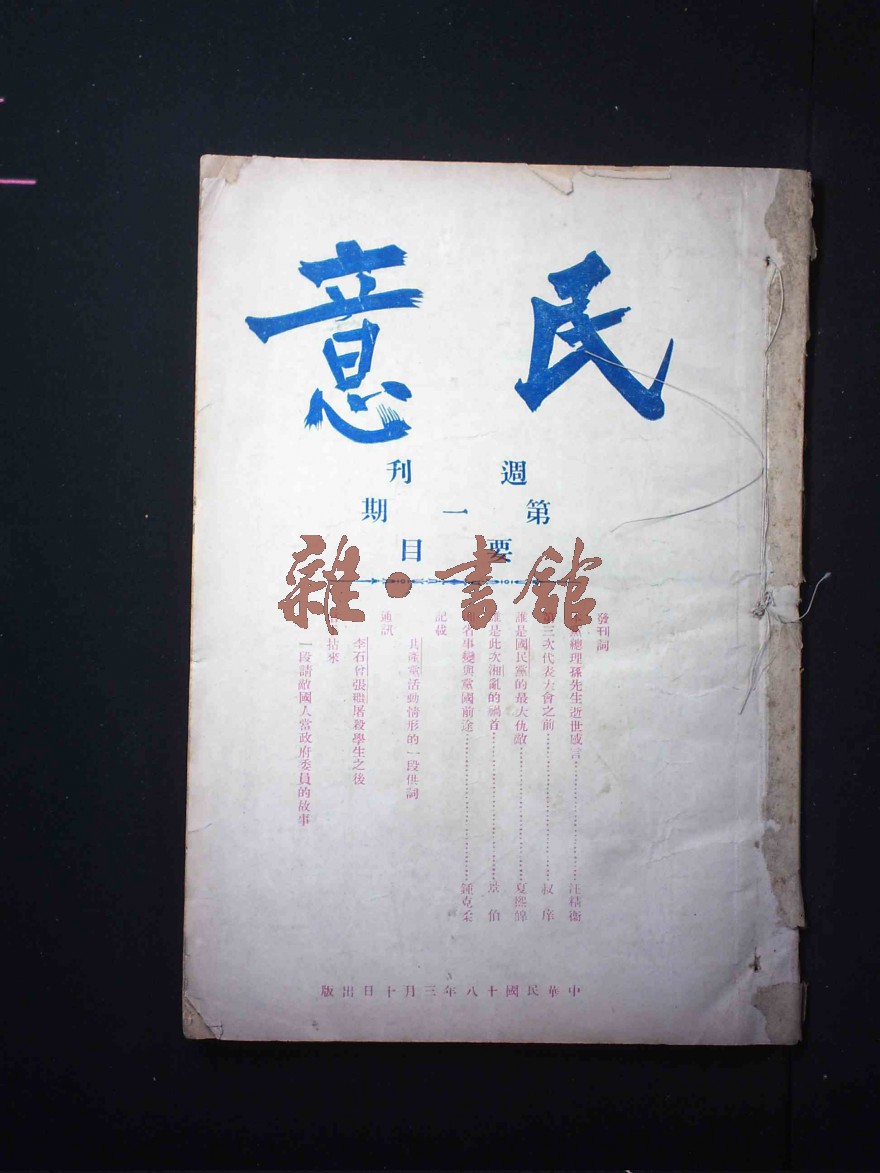 民意
週刊
第一期
要目
雜·書館
發刊詞
總理孫先生逝世感言⋯⋯⋯⋯汪精衛
第三次代表大會之前⋯⋯⋯⋯叔序
誰是國民黨的最大仇敵⋯⋯⋯⋯夏熙
誰是此次湘亂的禍首⋯⋯⋯⋯景伯
省事變與黨國前途⋯⋯⋯⋯鍾克柔
記載
共產黨活動情形的一段供詞
通訊
李石曾張繼屠殺學生之後
拈來
一段請敵國人當政府委員的故事
中華民國十八年三月十日出版